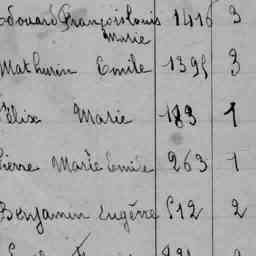 Edouard François Louis 1416 3
Marie
Mathurin Emile 1395 3
Félix Marie 183 1
Pierre Marie Emile 263 1
Benjamin Eugène 512 2